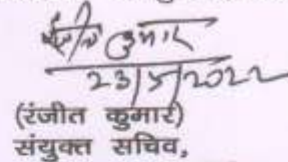 कुमार
23/5/2022
(रंजीत कुमार)
संयुक्त सचिव,